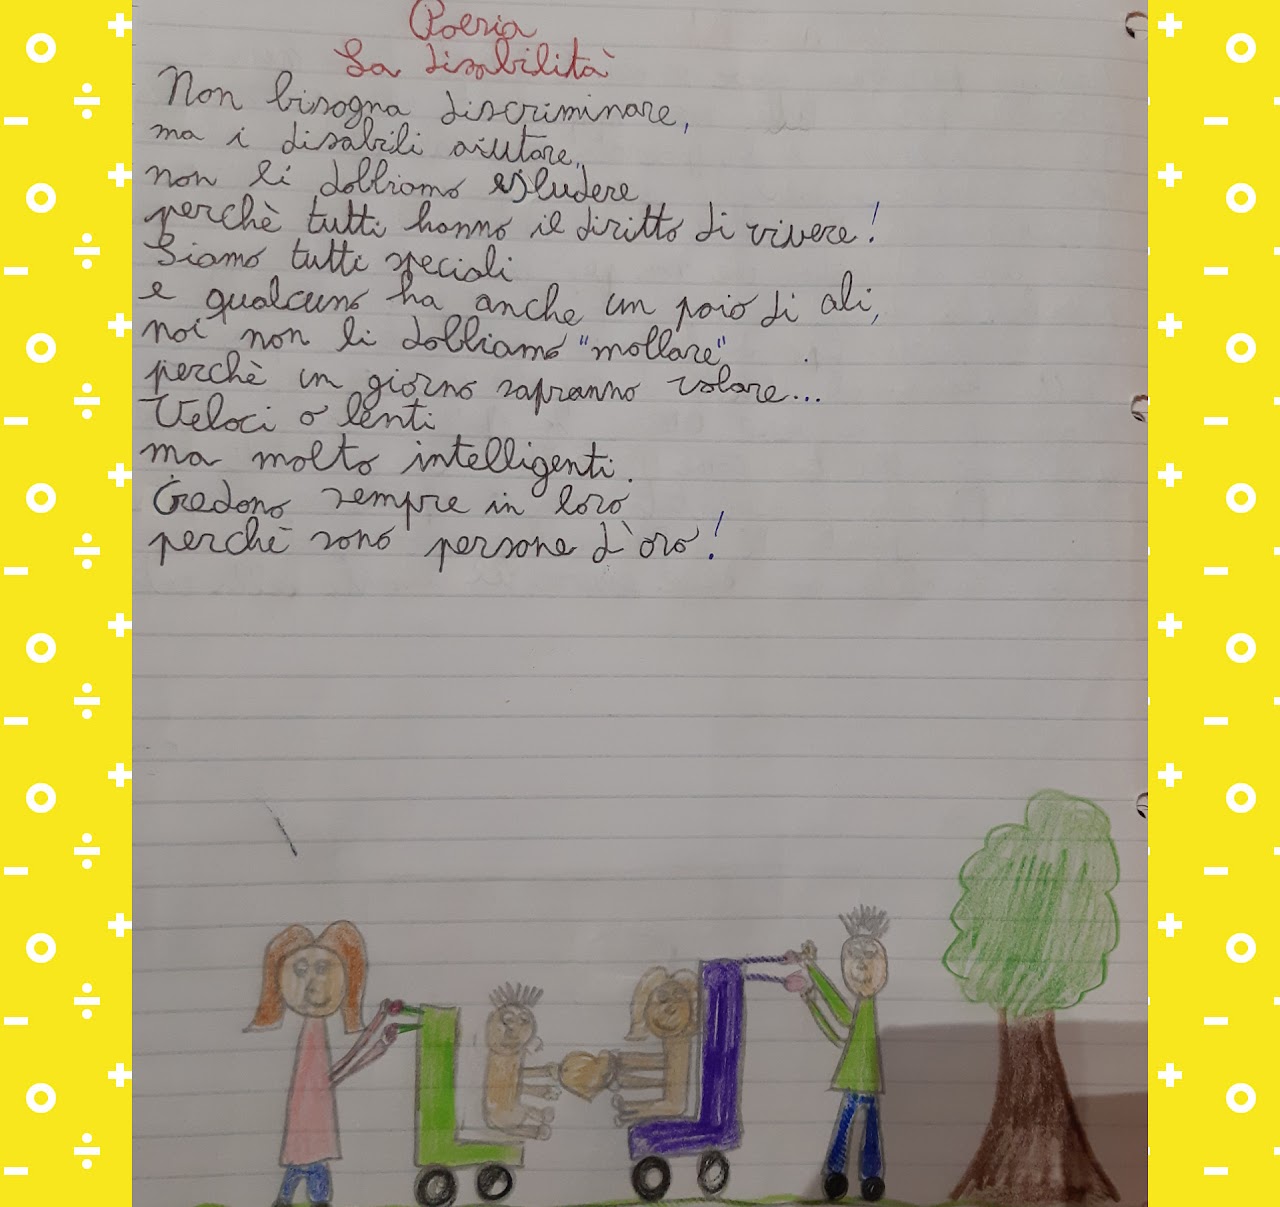 Poesia
La disabilità
Non bisogna discriminare,
ma i disabili aiutare,
non li dobbiamo escludere
perchè tutti hanno il diritto di vivere!
Siamo tutti speciali
e qualcuno ha anche un paio di ali,
noi non li dobbiamo "mollare"
perchè un giorno sapranno volare...
Veloci o lenti
ma molto intelligenti.
Credono sempre in loro
perchè sono persone d'oro!